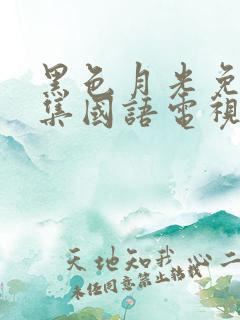 黑色月光免
集國語電視
天地知我心二
未经同意禁止转载